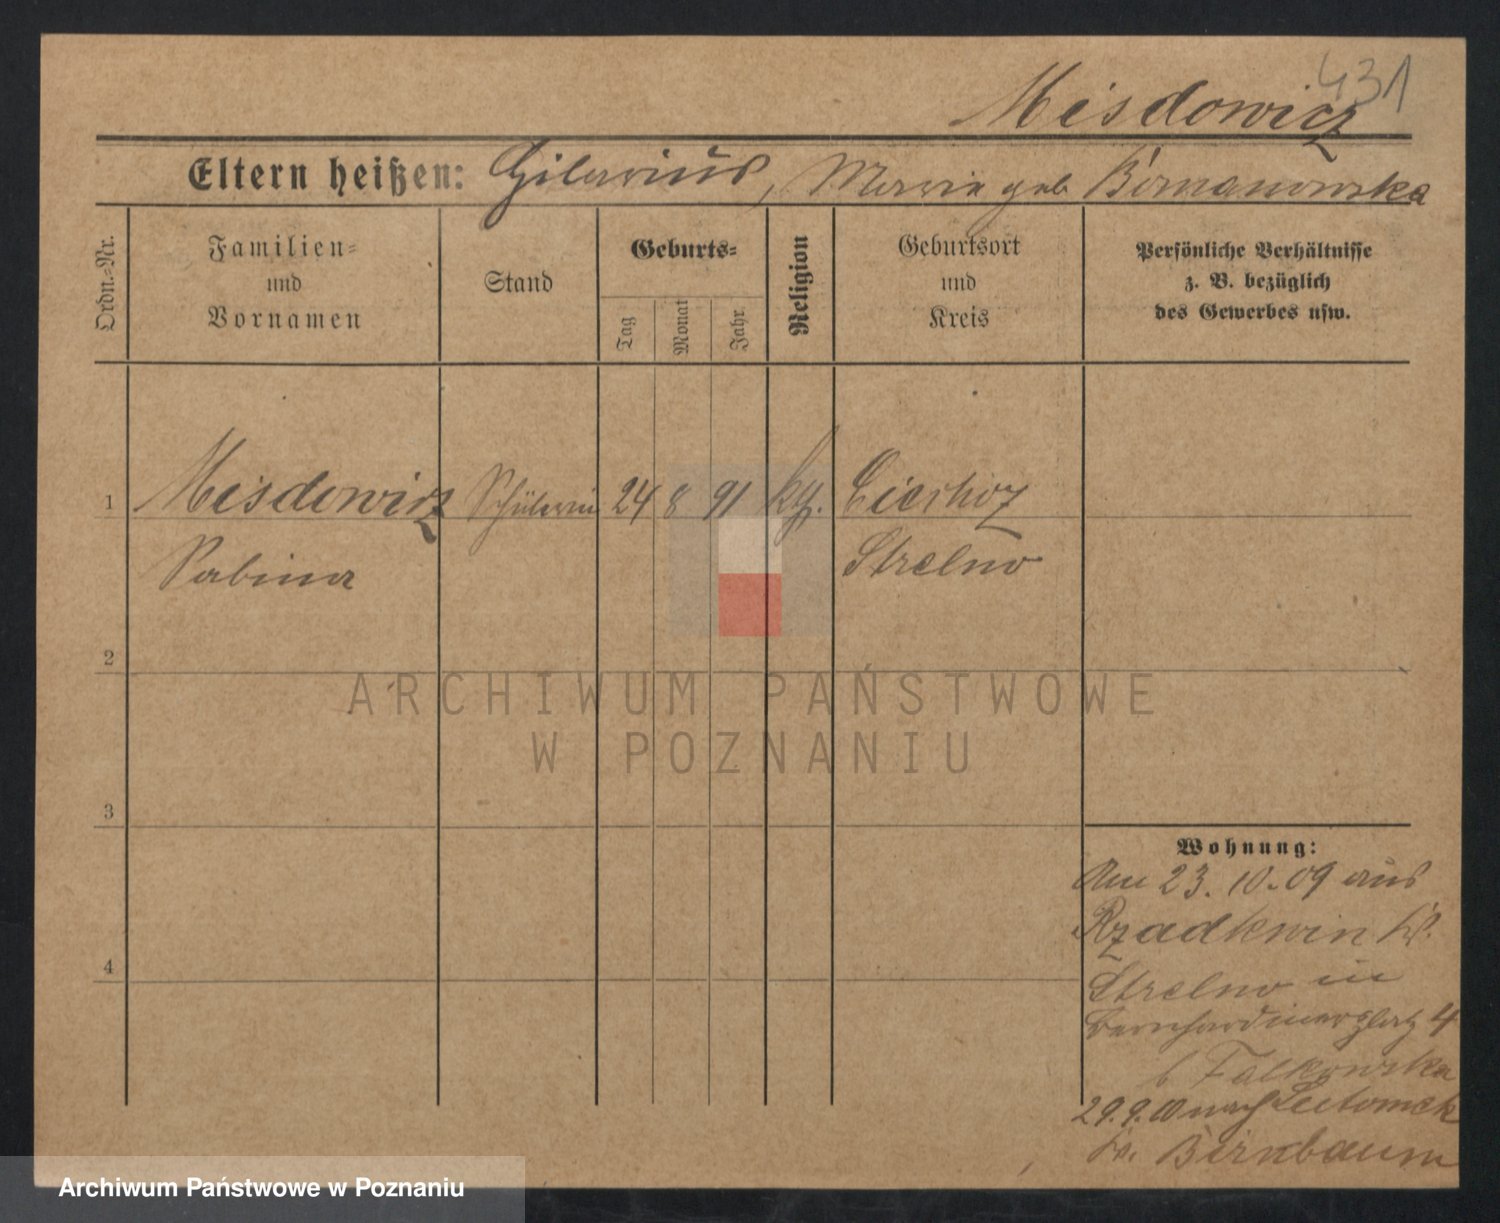 431
Misdowicz
Eltern heißen: Hilarius, Maria geb
Ordn.=Nr.
Familien=
und
Vornamen
Stand
Geburts=
Tag
Monat
Jahr.
Religion
Geburtsort
und
Kreis
Persönliche Verhältnisse
z. B. bezüglich
des Gewerbes usw.
1
Misdowicz Schülerin 24 8 91 kg.
Sabina Strelno
2
ARCHIWUM PAŃSTWOWE
W POZNANIU
3
4
Wohnung:
Am 23. 10. 09 aus
Rzadkwin Kr.
Strelno in
Bernhardinerplatz 4
b Falkowska
29. 9. 10 nach
Kr. Birnbaum
Archiwum Państwowe w Poznaniu